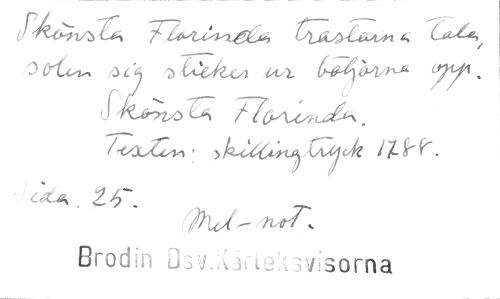 Skönsta Florinda trastarna tala,
solen sig sticker ur böljorna opp.
Skönsta Florinda.
Texten: skillingtryck 1788.
Sida. 25.
Mel-not.
Brodin Dsv.Kärleksvisorna